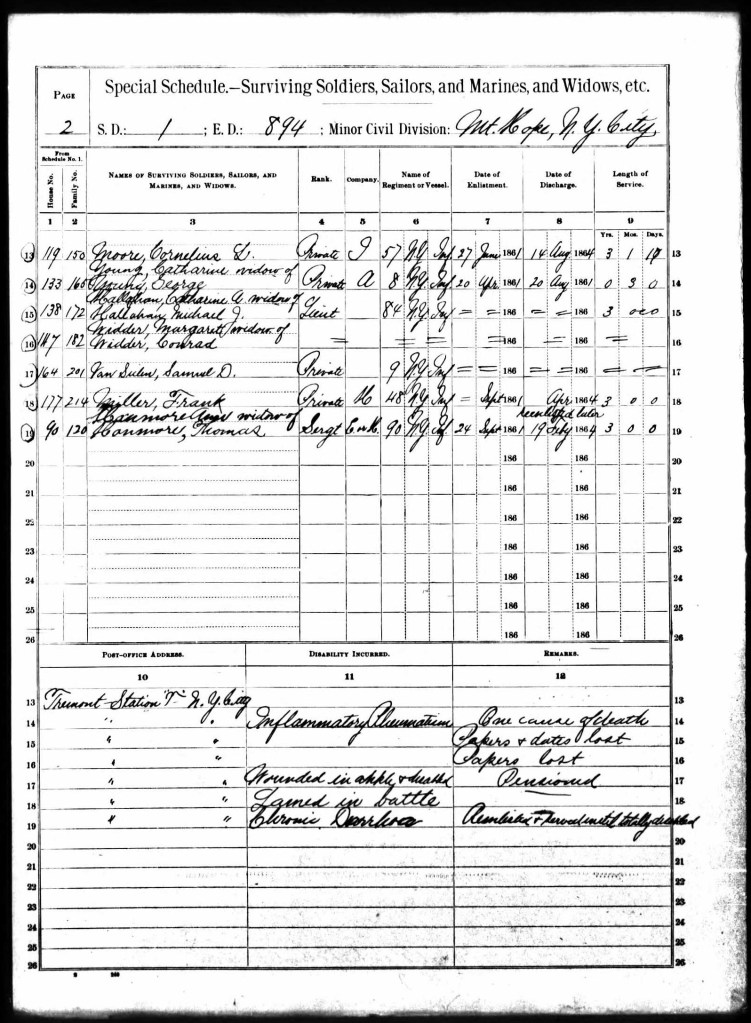 Special Schedule.—Surviving Soldiers, Sailors, and Marines, and Widows, etc.
PAGE 2
S. D.: 1 ; E. D.: 894 ; Minor Civil Division: Mt. Hope, N. Y. City,
From Schedule No. 1.
House No. Family No. NAMES OF SURVIVING SOLDIERS, SAILORS, AND MARINES, AND WIDOWS. Rank. Company. Name of Regiment or Vessel. Date of Enlistment. Date of Discharge. Length of Service.
1 2 3 4 5 6 7 8 9
Yrs. Mos. Days.
13 119 150 Moore, Cornelius L. Private I 57 N.Y. Inf 27 June 1861 14 Aug 1864 3 1 13
Young, Catharine widow of
14 133 165 Young, George Private A 8 N.Y. Inf 20 Apr 1861 20 Aug 1861 0 3 0 14
Catharine A. widow of
15 138 172 Hallahan, Michael J. Lieut 84 N.Y. Inf = = 186 = = 186 3 0 0 15
Widder, Margaret widow of
16 147 182 Widder, Conrad = = = = 186 = = 186 = 16
17 164 201 Samuel D. Private 9 N.Y. Inf = = 186 = = 186 = = = 17
18 177 214 Miller, Frank Private H 48 N.Y. Inf = Sept 1861 Apr 1864 3 0 0 18
Hanmore widow of
19 90 120 Hanmore, Thomas Sergt 90 N.Y. Inf 24 Sept 1861 19 Feby 1864 3 0 0 19
20 186 186 20
21 186 186 21
22 186 186 22
23 186 186 23
24 186 186 24
25 186 186 25
26 186 186 26
POST-OFFICE ADDRESS. DISABILITY INCURRED. REMARKS.
10 11 12
13 Tremont Station "T" N. Y. City 13
14 " " Inflammatory Rheumatism One cause of death 14
15 " " Papers & dates lost 15
16 " " Papers lost 16
17 " " Wounded in ankle & disabled Pensioned 17
18 " " Lamed in battle 18
19 " " Chronic Diarrhoea Reenlisted & served until totally disabled 19
20 20
21 21
22 22
23 23
24 24
25 25
26 26